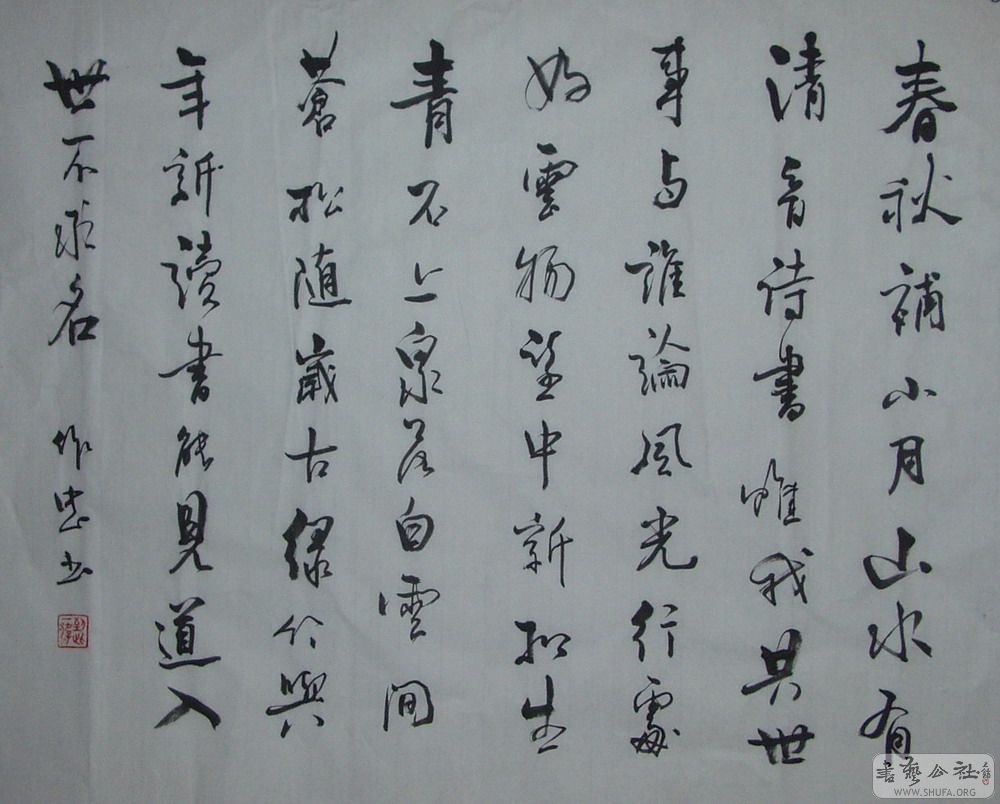 春秋補小月山水有
清音诗書唯我共世
事与誰論風光行處
好雲物望中新松生
青石上泉落白雲間
蒼松随歲古緑竹與
年新讀書能見道入
世不求名 作忠书
書藝公社
WWW.SHUFA.ORG